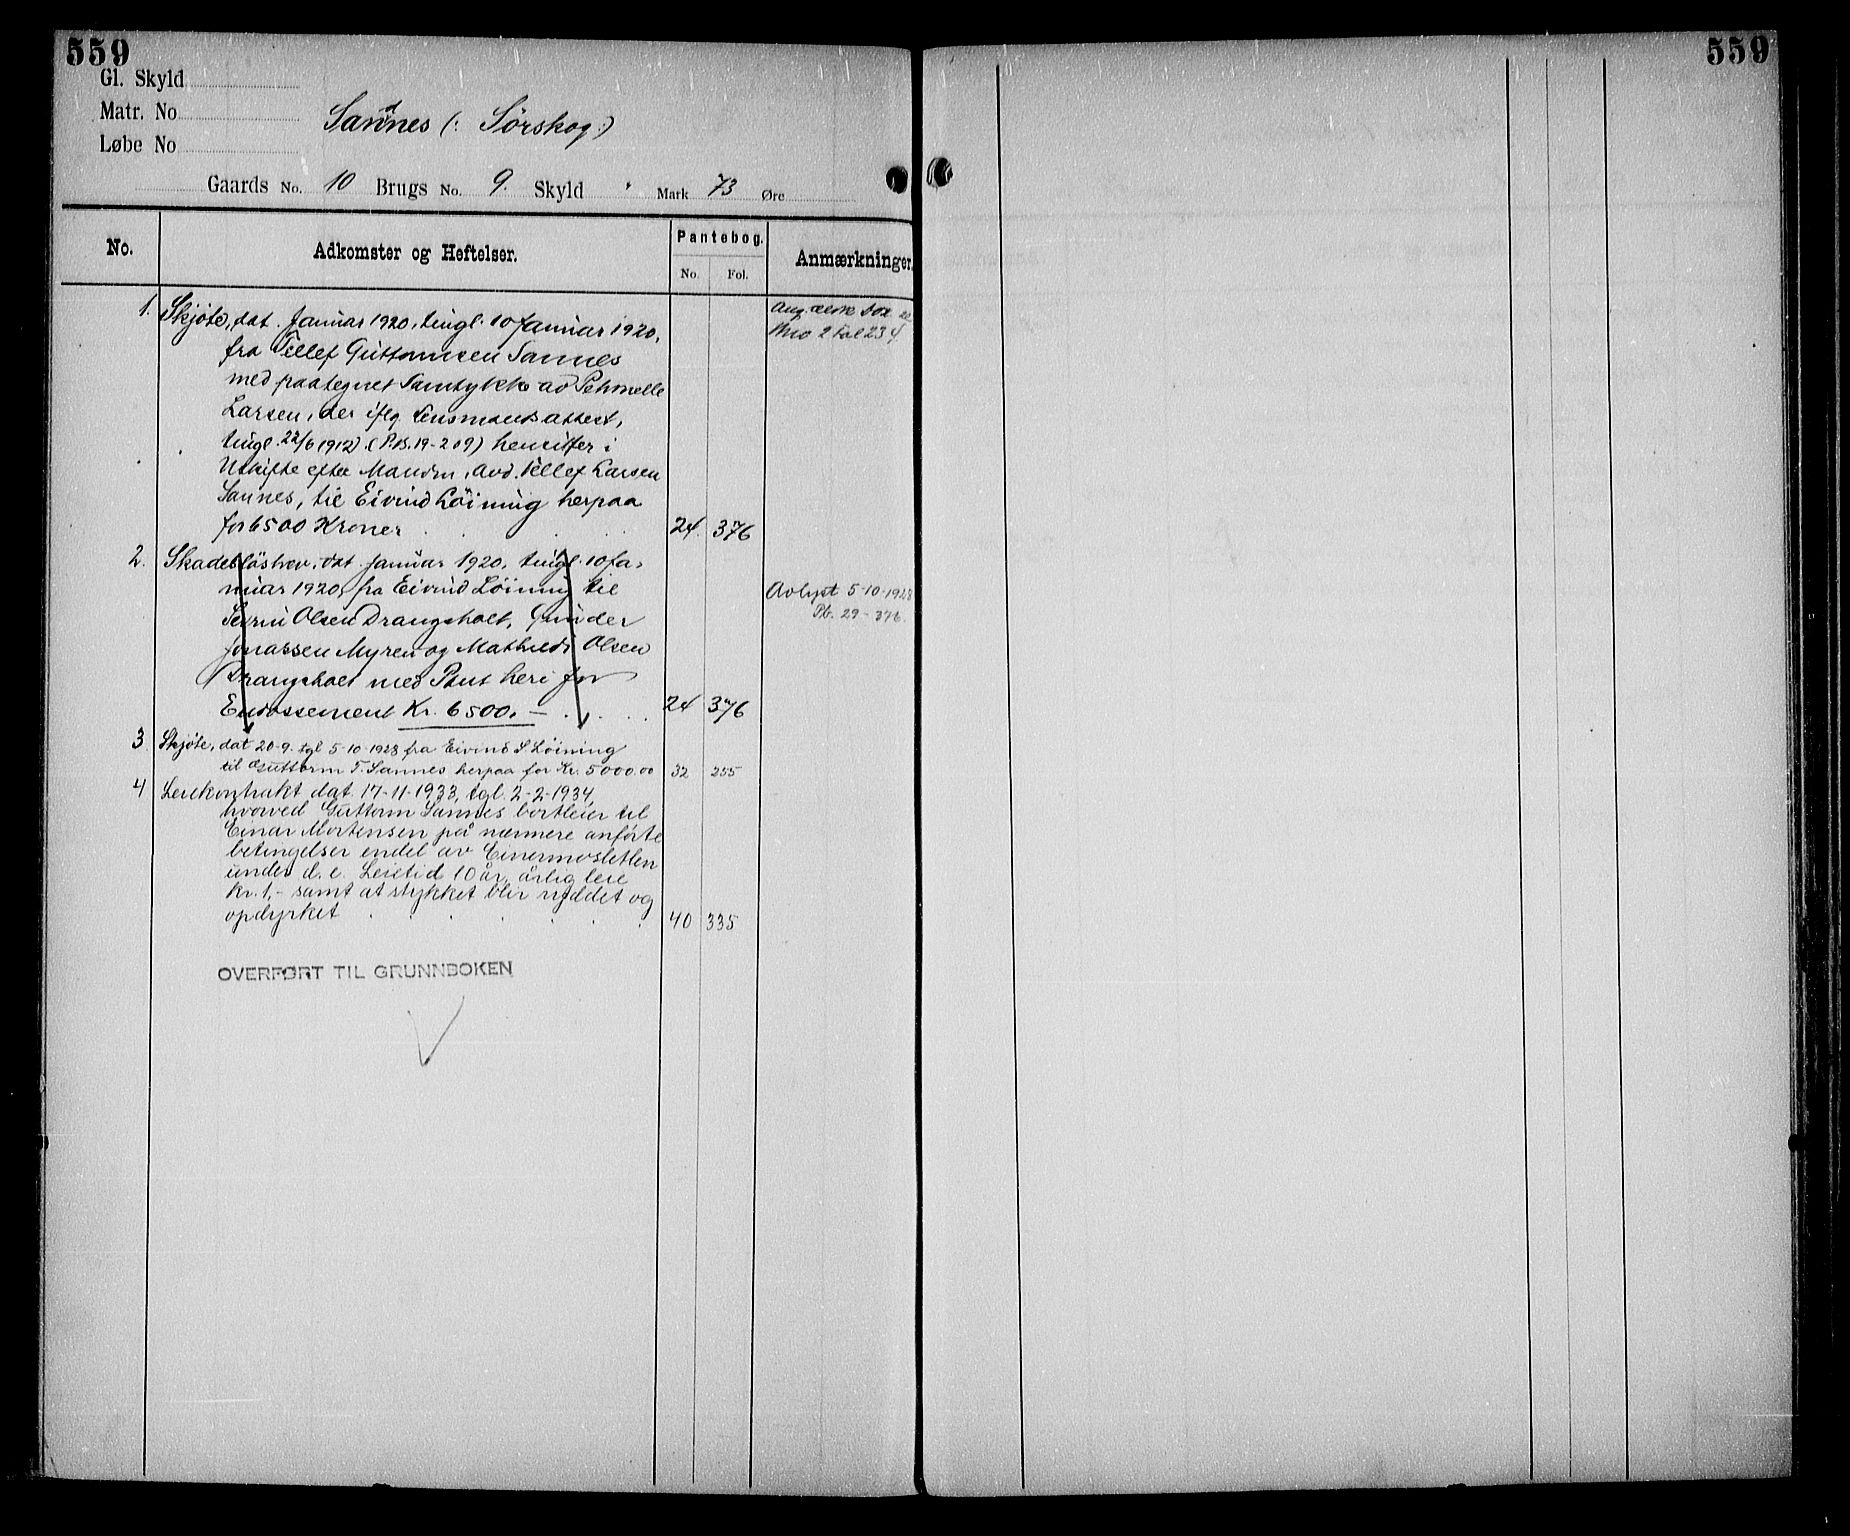 559
559
Gl. Skyld
Matr. No
Løbe No
Sandnes (: Sørskog :)
Gaards No. 10 Brugs No. 9. Skyld " Mark 73 Øre
No.
Adkomster og Heftelser.
Pantebog.
No. Fol.
Anmærkninger.
1. Skjøte, dat. Januar 1920, tingl. 10 Januar 1920,
fra Tellef Guttormsen Sannes
med paategnet Samtykke av Petrnelle
Larsen, der iflg. Lensmandsattest,
tingl. 22/6 1912 (P.B. 19-209) hensitter i
Uskifte efter Manden, avd. Tellef Larsen
Sannes, til Eivind Løining herpaa
for 6500 Kroner 24. 376
Ang. ældre Dok. se
No 2 Fol 234
2. Skadesløsbrev, dat. Januar 1920, tingl. 10 Ja-
nuar 1920, fra Eivind Løining til
Olsen Drangsholt, Gunder
Jonassen Myren og Mathilde Olsen
Drangsholt med Pant heri for
Endossement Kr. 6500.- 24 376
Avlyst 5-10-1928
Pb. 29-376.
3. Skjøte, dat 20-9. tgl 5-10-1928 fra Eivind S Løining
til Guttorm T. Sannes herpaa for Kr. 5000.00 32 255
4 Leiekontrakt dat. 17-11-1933, tgl. 2-2-1934,
hvorved Guttorm Sannes bortleier til
Einar Mortensen på nærmere anførte
betingelser endel av Einermosletten
under d. e. Leietid 10 år, årlig leie
kr. 1,- samt at stykket blir ryddet og
opdyrket 40 335
OVERFØRT TIL GRUNNBOKEN